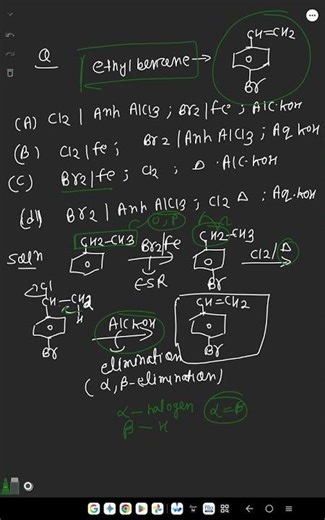 Q ethyl benzene → CH=CH2
Br
(A) Cl2 | Anh AlCl3 ; Br2 | Fe ; Alc. KOH
(B) Cl2 | Fe ; Br2 | Anh AlCl3 ; Aq KOH
(C) Br2 | Fe ; Cl2 , Δ . Alc. KOH
(d) Br2 | Anh AlCl3 ; Cl2 Δ ; Aq. KOH
O, P
Soln CH2-CH3 Br2/Fe CH2-CH3 Cl2/Δ
ESR Br
Cl
CH-CH2 H Alc KOH CH=CH2
Br Br
elimination
(α, β-elimination)
α - halogen α=β
β - H